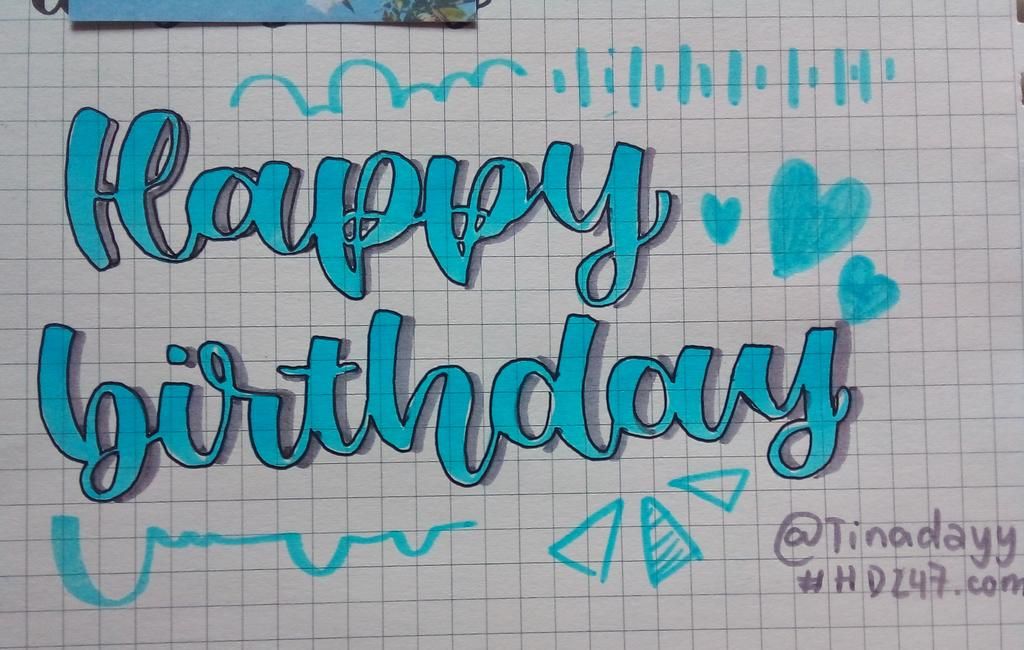 Happy
birthday
@Tinadayy
#HDZ47.com